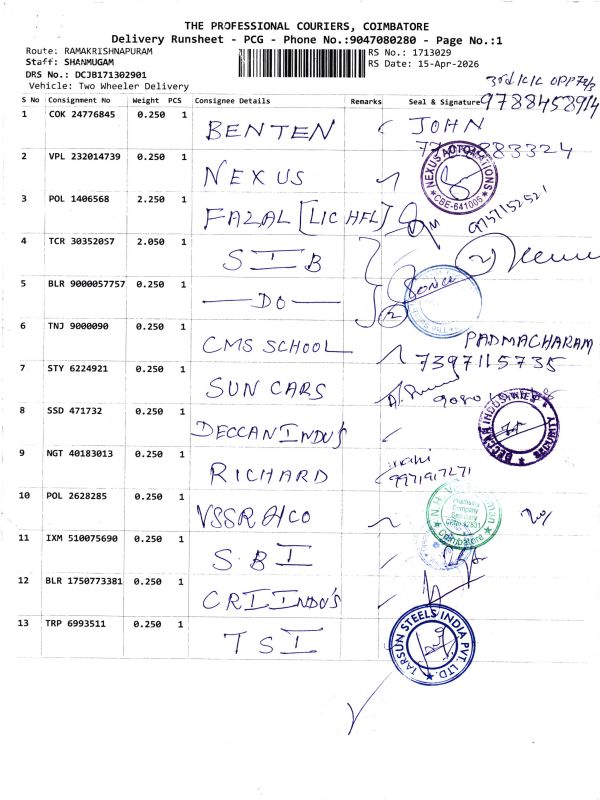 THE PROFESSIONAL COURIERS, COIMBATORE
Delivery Runsheet - PCG - Phone No.:9047080280 - Page No.:1
Route: RAMAKRISHNAPURAM
Staff: SHANMUGAM
DRS No.: DCJB171302901
Vehicle: Two Wheeler Delivery
RS No.: 1713029
RS Date: 15-Apr-2026
3rd
9788458914
S No Consignment No Weight PCS Consignee Details Remarks Seal & Signature
1 COK 24776845 0.250 1 BENTEN JOHN
2 VPL 232014739 0.250 1 NEXUS
NEXUS AUTOMATIONS
CBE-641006
3 POL 1406568 2.250 1 FAZAL [LIC HFL]
9757152521
4 TCR 30352057 2.050 1 SIB
5 BLR 9000057757 0.250 1 DO
2
6 TNJ 9000090 0.250 1 CMS SCHOOL PADMACHARAM
7397115735
7 STY 6224921 0.250 1 SUN CARS
8 SSD 471732 0.250 1 DECCAN INDU'S
DECCAN INDUSTRIES
9 NGT 40183013 0.250 1 RICHARD
9971917271
10 POL 2628285 0.250 1 VSSR &CO
Company
Secretary
Coimbatore
11 IXM 510075690 0.250 1 SBI
12 BLR 1750773381 0.250 1 CRI INDU'S
13 TRP 6993511 0.250 1 TSI
TARSUN STEELS INDIA PVT. LTD.